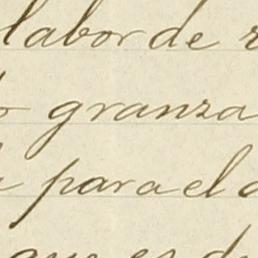 labor de
granza
para el
que es de